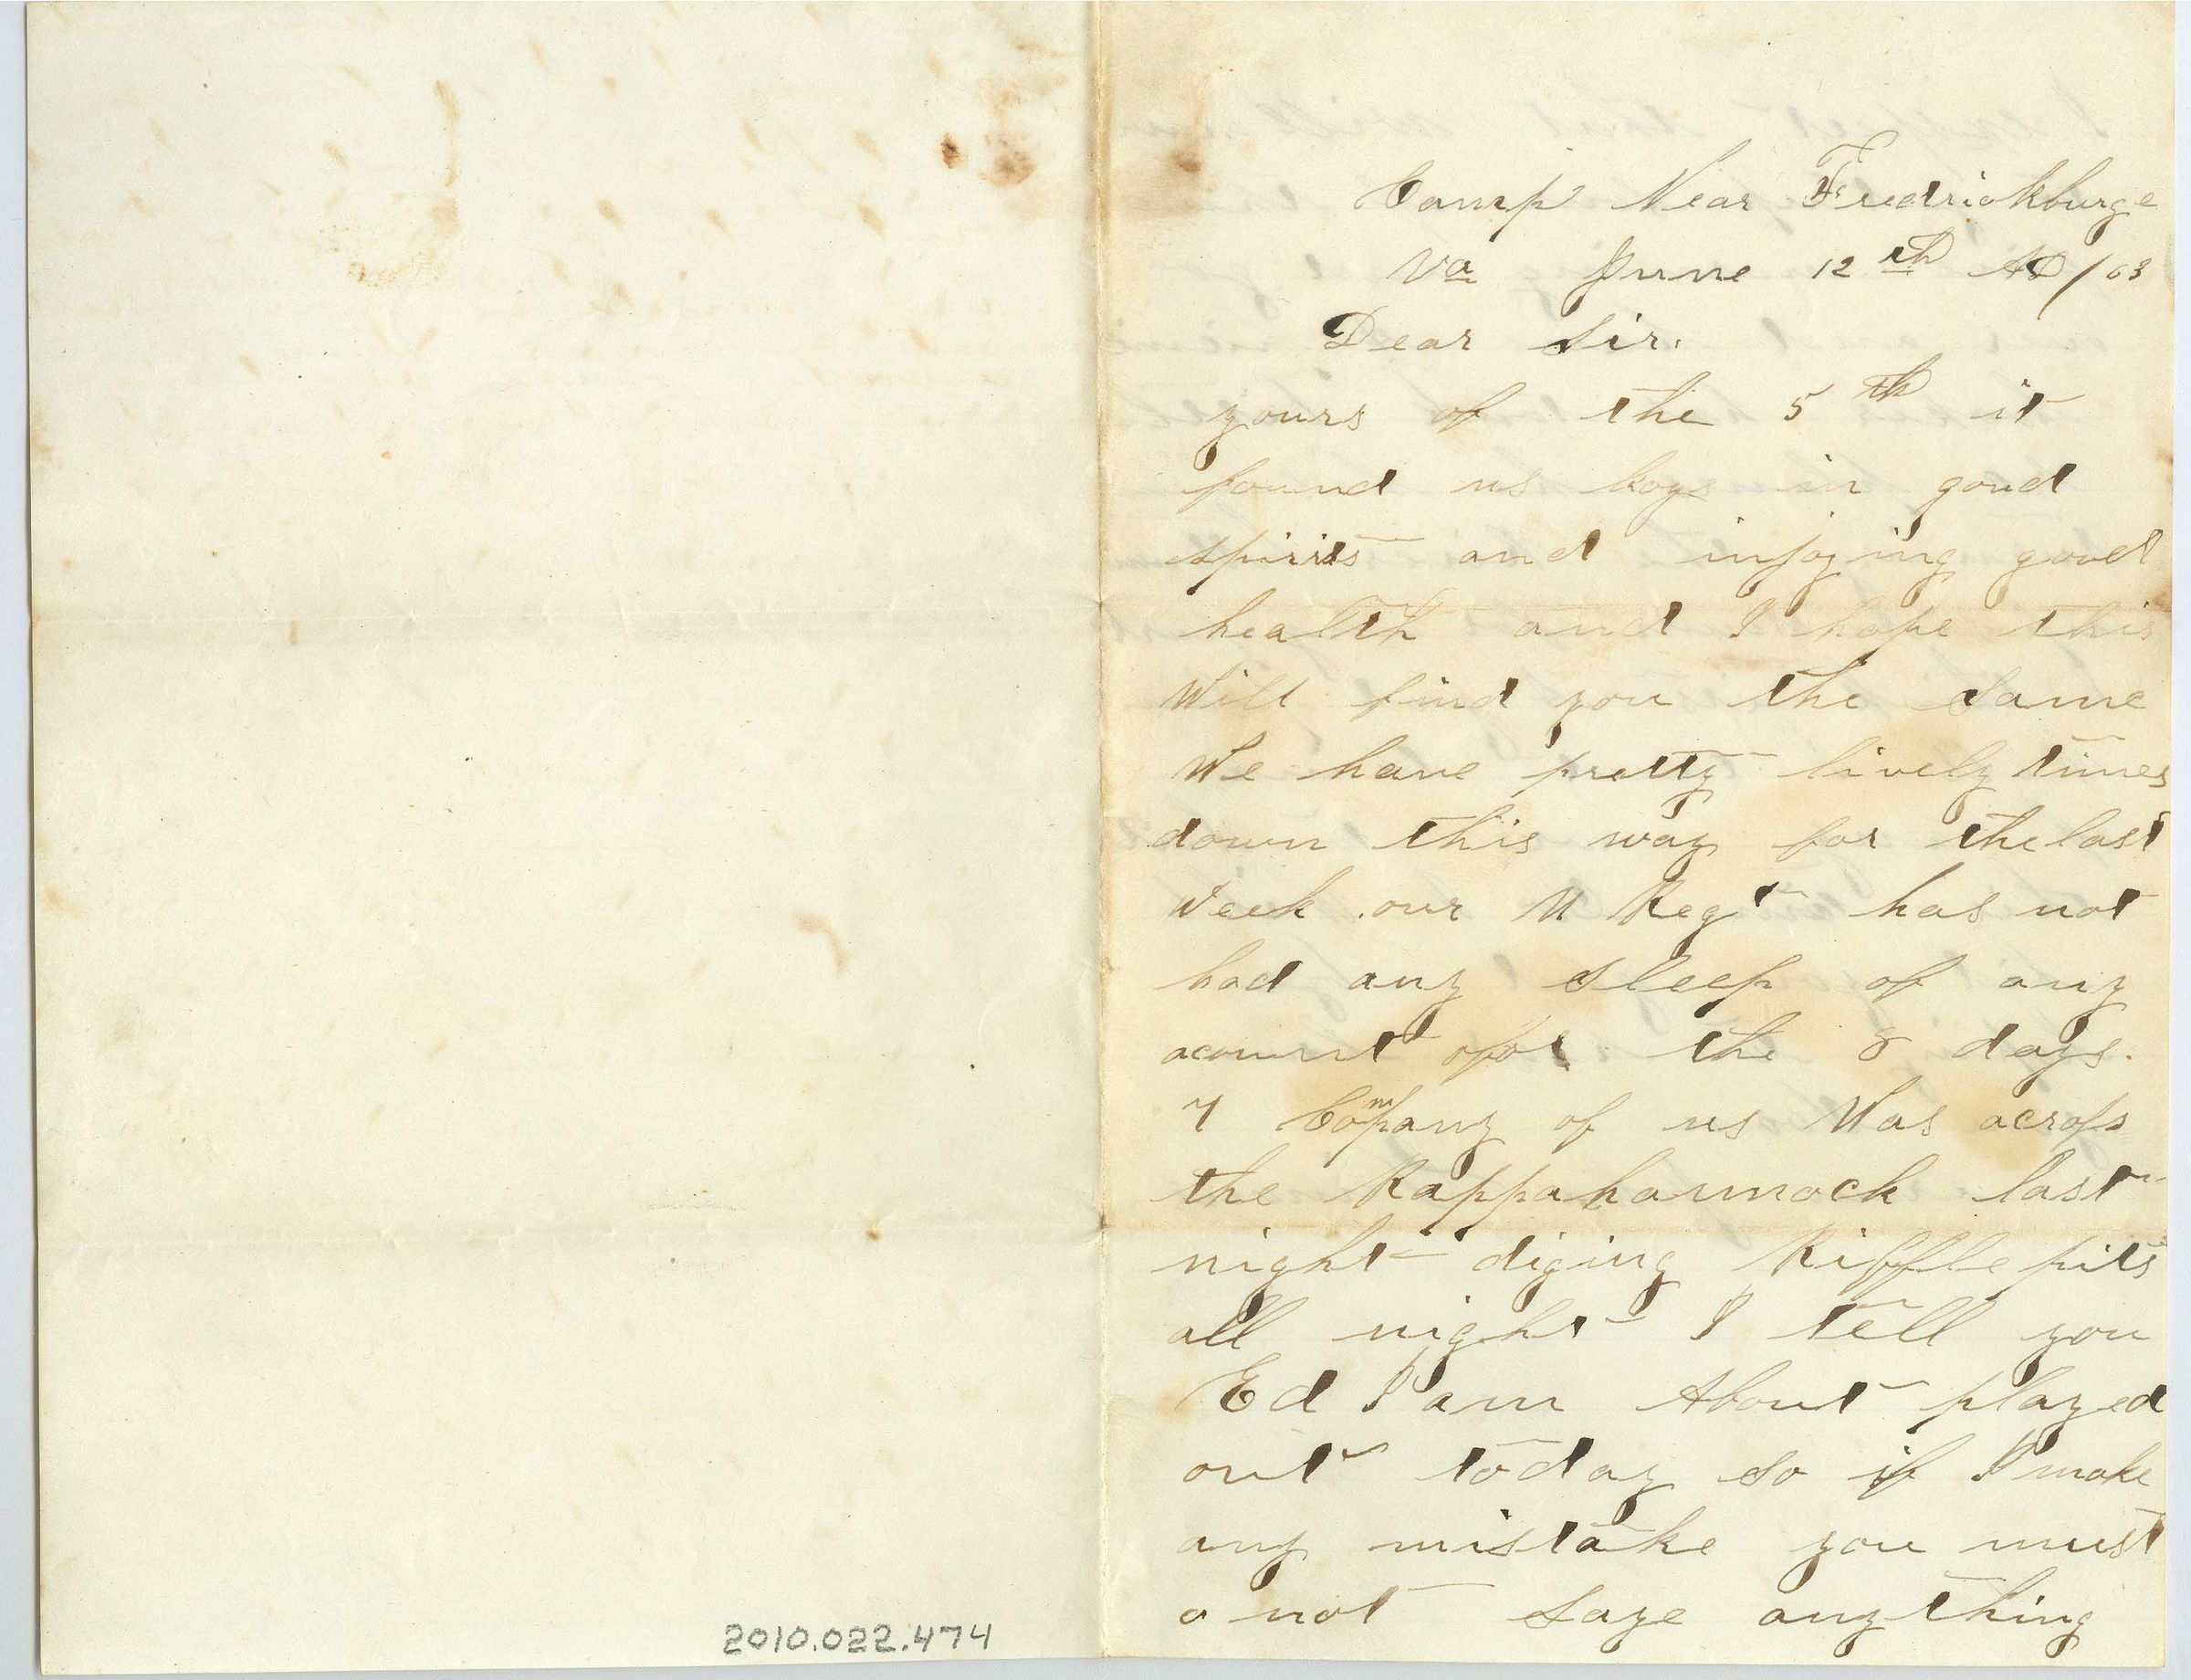 2010.022.474
Camp Near Fredrickburge
Va June 12th AD/63
Dear Sir.
yours of the 5th it
found us boys in goud
spirits and injoying goud
health and I hope this
Will find you the same
We have pretty lively times
down this way for the last
Week our Regt has not
had any sleep of any
acount for the 8 days.
7 Company of us Was across
the Rappahannock last
night diging Riffle pits
all night I tell you
Ed I am About played
out today so if I make
any mistake you must
not saye anything